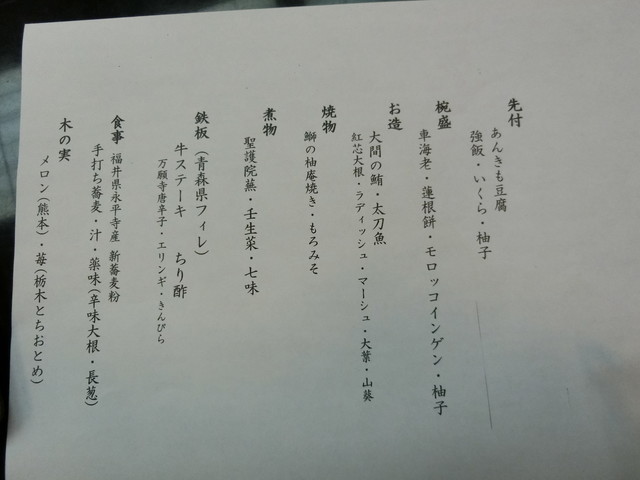 先付
あんきも豆腐
強飯・いくら・柚子
椀盛
車海老・蓮根餅・モロッコインゲン・柚子
お造
大間の鮪・太刀魚
紅芯大根・ラディッシュ・マーシュ・大葉・山葵
焼物
鰤の柚庵焼き・もろみそ
煮物
聖護院蕪・壬生菜・七味
鉄板（青森県フィレ）
牛ステーキ　ちり酢
万願寺唐辛子・エリンギ・きんぴら
食事　福井県永平寺産　新蕎麦粉
手打ち蕎麦・汁・薬味（辛味大根・長葱）
木の実
メロン（熊本）・苺（栃木とちおとめ）